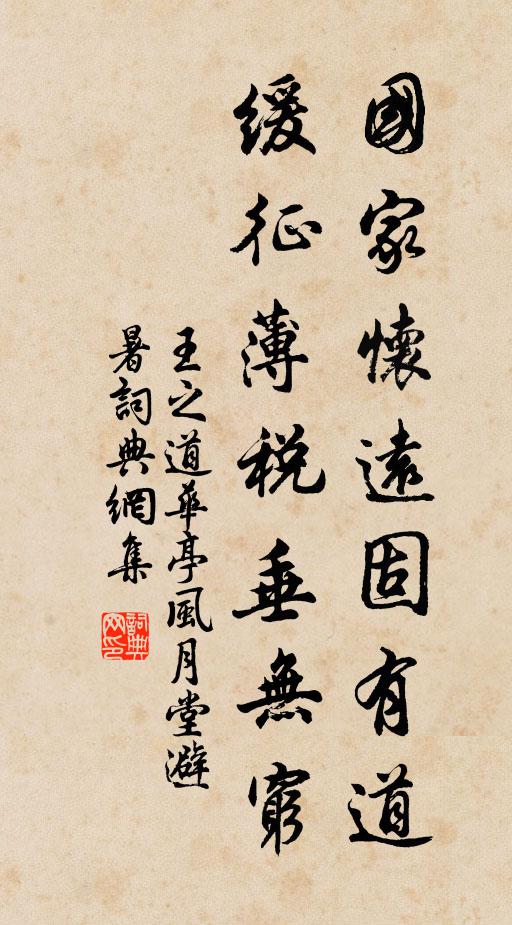 國家懷遠固有道
緩征薄税垂無窮
王之道華亭風月堂避
暑詞典網集
詞典
网印